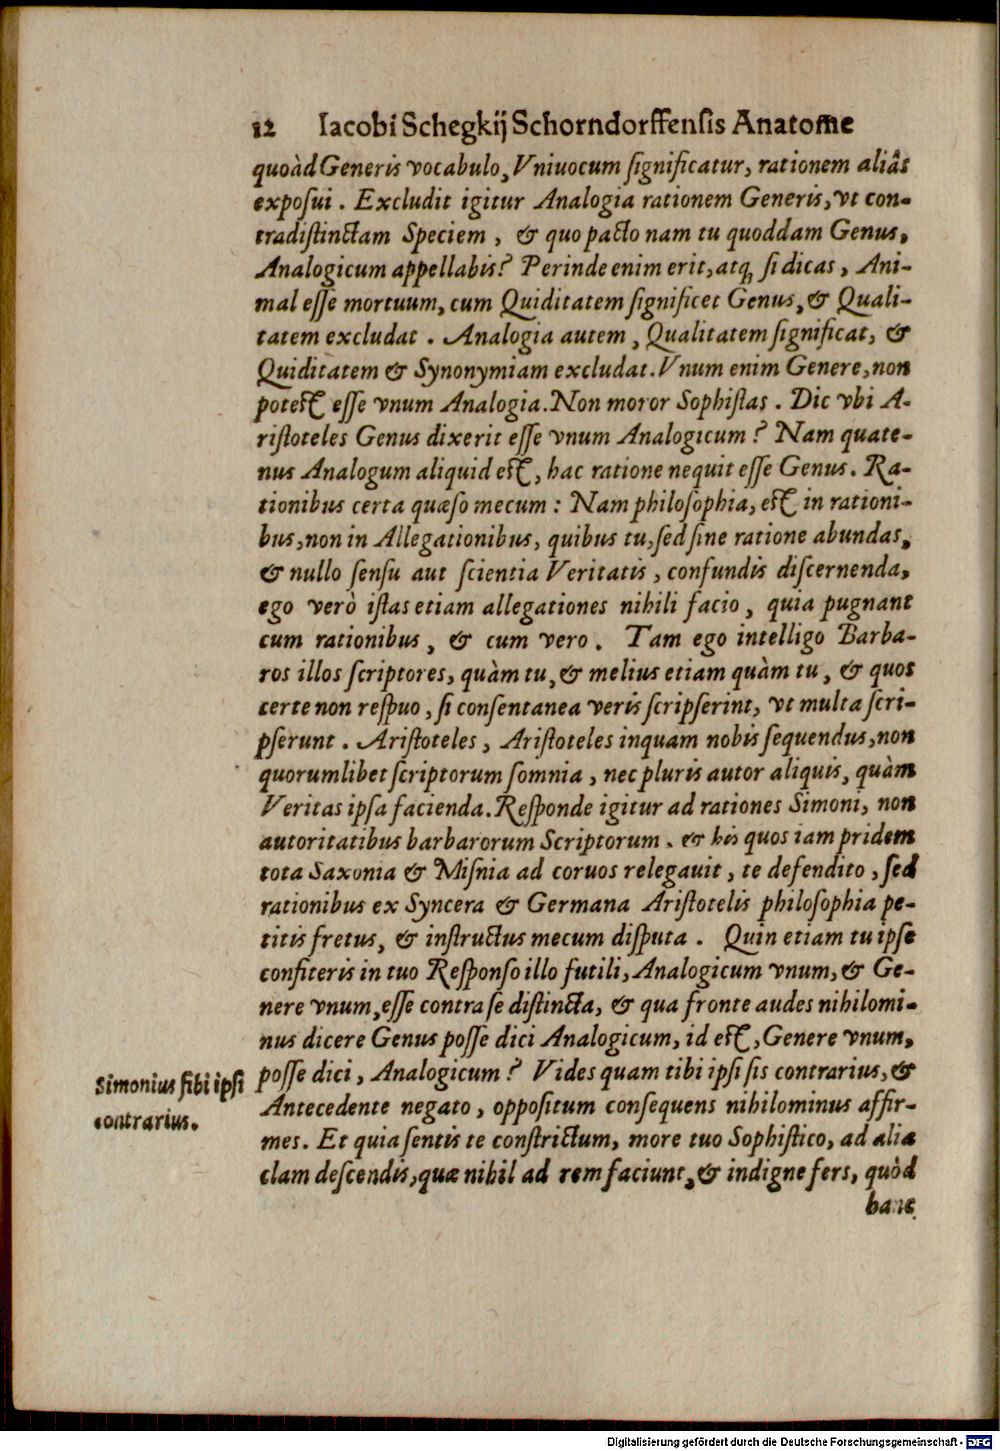 12 Iacobi Schegkij Schorndorffensis Anatome
quoàd Generis vocabulo, Vniuocum significatur, rationem aliâs
exposui. Excludit igitur Analogia rationem Generis, vt con-
tradistinctam Speciem, & quo pacto nam tu quoddam Genus,
Analogicum appellabis? Perinde enim erit, atq; si dicas, Ani-
mal esse mortuum, cum Quiditatem significet Genus, & Quali-
tatem excludat. Analogia autem, Qualitatem significat, &
Quiditatem & Synonymiam excludat. Vnum enim Genere, non
potest esse vnum Analogia. Non moror Sophistas. Dic vbi A-
ristoteles Genus dixerit esse vnum Analogicum? Nam quate-
nus Analogum aliquid est, hac ratione nequit esse Genus. Ra-
tionibus certa quæso mecum: Nam philosophia, est in rationi-
bus, non in Allegationibus, quibus tu, sed sine ratione abundas,
& nullo sensu aut scientia Veritatis, confundis discernenda,
ego verò istas etiam allegationes nihili facio, quia pugnant
cum rationibus, & cum vero. Tam ego intelligo Barba-
ros illos scriptores, quàm tu, & melius etiam quàm tu, & quos
certe non respuo, si consentanea veris scripserint, vt multa scri-
pserunt. Aristoteles, Aristoteles inquam nobis sequendus, non
quorumlibet scriptorum somnia, nec pluris autor aliquis, quàm
Veritas ipsa facienda. Responde igitur ad rationes Simoni, non
autoritatibus barbarorum Scriptorum. & his quos iam pridem
tota Saxonia & Misnia ad coruos relegauit, te defendito, sed
rationibus ex Syncera & Germana Aristotelis philosophia pe-
titis fretus, & instructus mecum disputa. Quin etiam tu ipse
confiteris in tuo Responso illo futili, Analogicum vnum, & Ge-
nere vnum, esse contra se distincta, & qua fronte audes nihilomi-
nus dicere Genus posse dici Analogicum, id est, Genere vnum,
posse dici, Analogicum? Vides quam tibi ipsi sis contrarius, &
Antecedente negato, oppositum consequens nihilominus affir-
mes. Et quia sentis te constrictum, more tuo Sophistico, ad alia
clam descendis, quæ nihil ad rem faciunt, & indigne fers, quòd
hanc
Simonius sibi ipsi
contrarius.
Digitalisierung gefördert durch die Deutsche Forschungsgemeinschaft - DFG